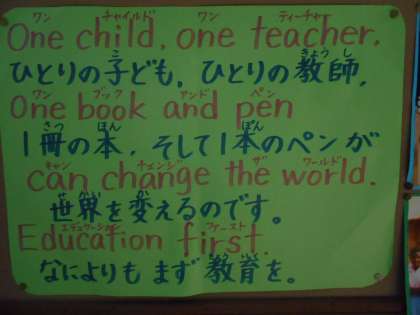 ワン チャイルド ワン ティーチャー
One child, one teacher.
こ きょう し
ひとりの子ども、ひとりの教師、
ワン ブック アンド ペン
One book and pen
さつ ほん ぽん
1冊の本、そして1本のペンが
キャン チェンジ ザ ワールド
can change the world.
せかい か
世界を変えるのです。
エデュケーション ファースト
Education first.
なによりも まず 教育を。